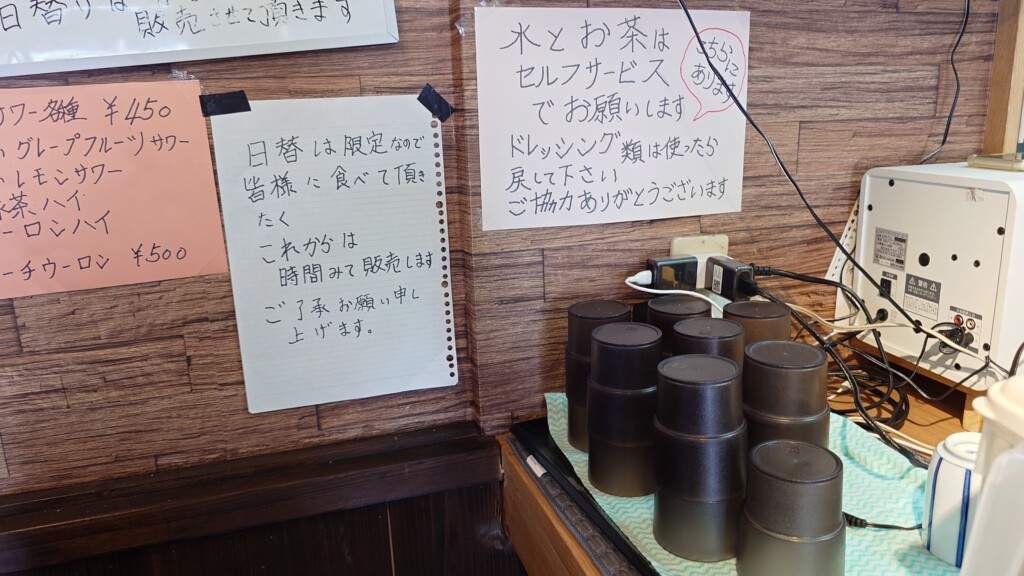 日替りは
販売させて頂きます
サワー各種 ¥450
グレープフルーツサワー
レモンサワー
茶ハイ
ーロンハイ
ーチウーロン ¥500
日替は限定なので
皆様に食べて頂き
たく
これからは
時間みて販売します
ご了承お願い申し
上げます。
水とお茶は
セルフサービス
でお願いします
こちらに
あります
ドレッシング類は使ったら
戻して下さい
ご協力ありがとうございます
警告